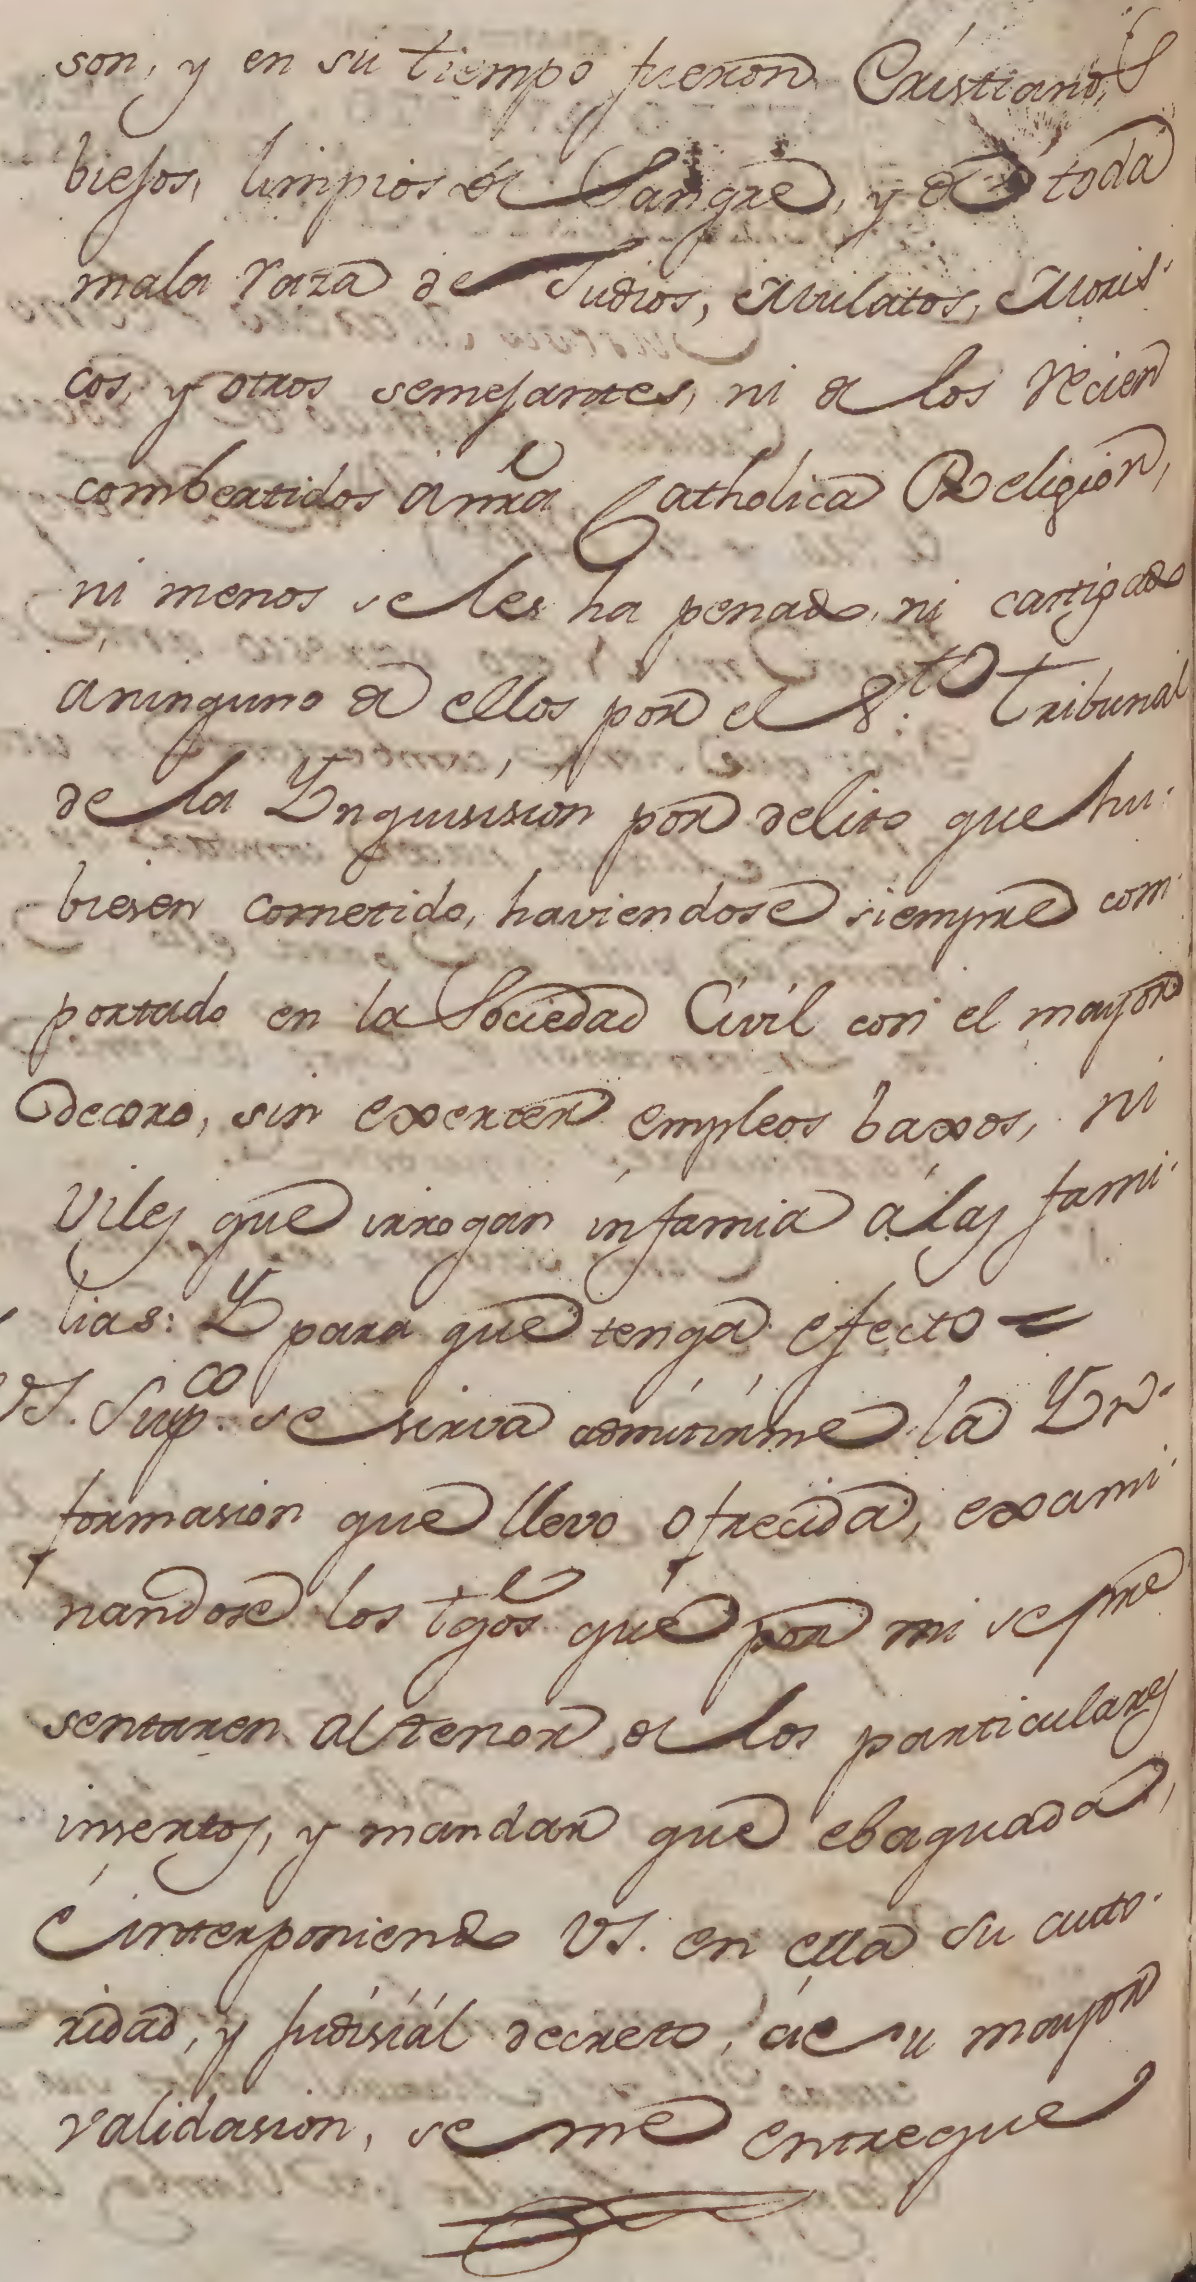 son, y en su tiempo fueron Cristianos
biejos, limpios de Sangre, y de toda
mala raza de Judios, Mulatos, Moris-
cos, y otros semejantes, ni de los recien
combertidos a nrã Catholica Religion,
ni menos se les ha penado, ni castigado
á ninguno de ellos por el S.to Tribunal
de la Ynquisision por delito que hu-
biesen cometido, haviendose siempre com-
portado en la Sociedad Civil con el mayor
decoro, sin exercer empleos baxos, ni
viles que irrogan infamia á las fami-
lias: Y para que tenga efecto =
VS. Supco. se sirva admitirme la Yn-
formasion que llevo ofrecida, exami-
nandose los tgõs que por mi se pre
sentaren al tenor de los particulares
insertos, y mandar que ebaquada,
é interponiendo VS. en ella su auto-
ridad, y judisiál decreto, á su mayor
validasion, se me entregue